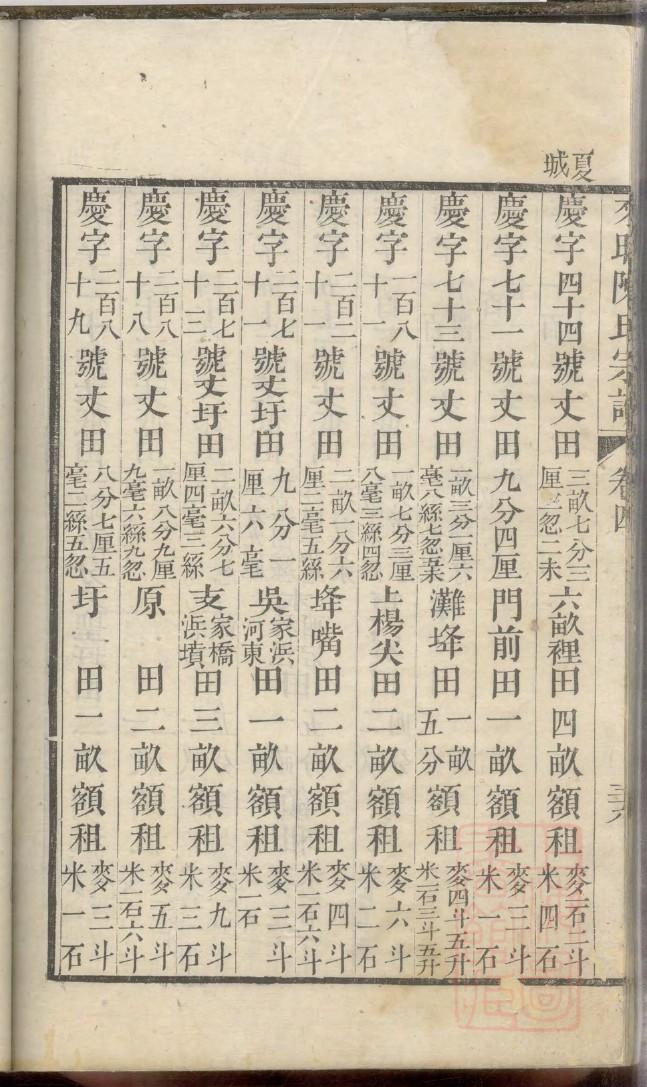 夏城
陳氏宗譜 卷四
慶字四十四號丈田三畝七分三厘二忽二未六畝裡田四畝額租麥一石二斗米四石
慶字七十一號丈田九分四厘門前田一畝額租麥三斗米一石
慶字七十三號丈田一畝三分一厘六毫八絲七忽五未灘埄田一畝五分額租麥四斗五升米一石三斗五升
慶字一百八十一號丈田一畝七分三厘八毫三絲四忽上楊尖田二畝額租麥六斗米二石
慶字二百二十一號丈田二畝一分六厘二毫五絲埄嘴田二畝額租麥四斗米一石六斗
慶字二百七十一號丈圩田九分一厘六毫吳家浜河東田一畝額租麥三斗米一石
慶字二百七十三號丈圩田二畝六分七厘四毫三絲支家橋浜墳田三畝額租麥九斗米三石
慶字二百八十八號丈田一畝八分九厘九毫六絲九忽原田二畝額租麥五斗米一石六斗
慶字二百八十九號丈田八分七厘五毫二絲五忽圩田一畝額租麥三斗米一石